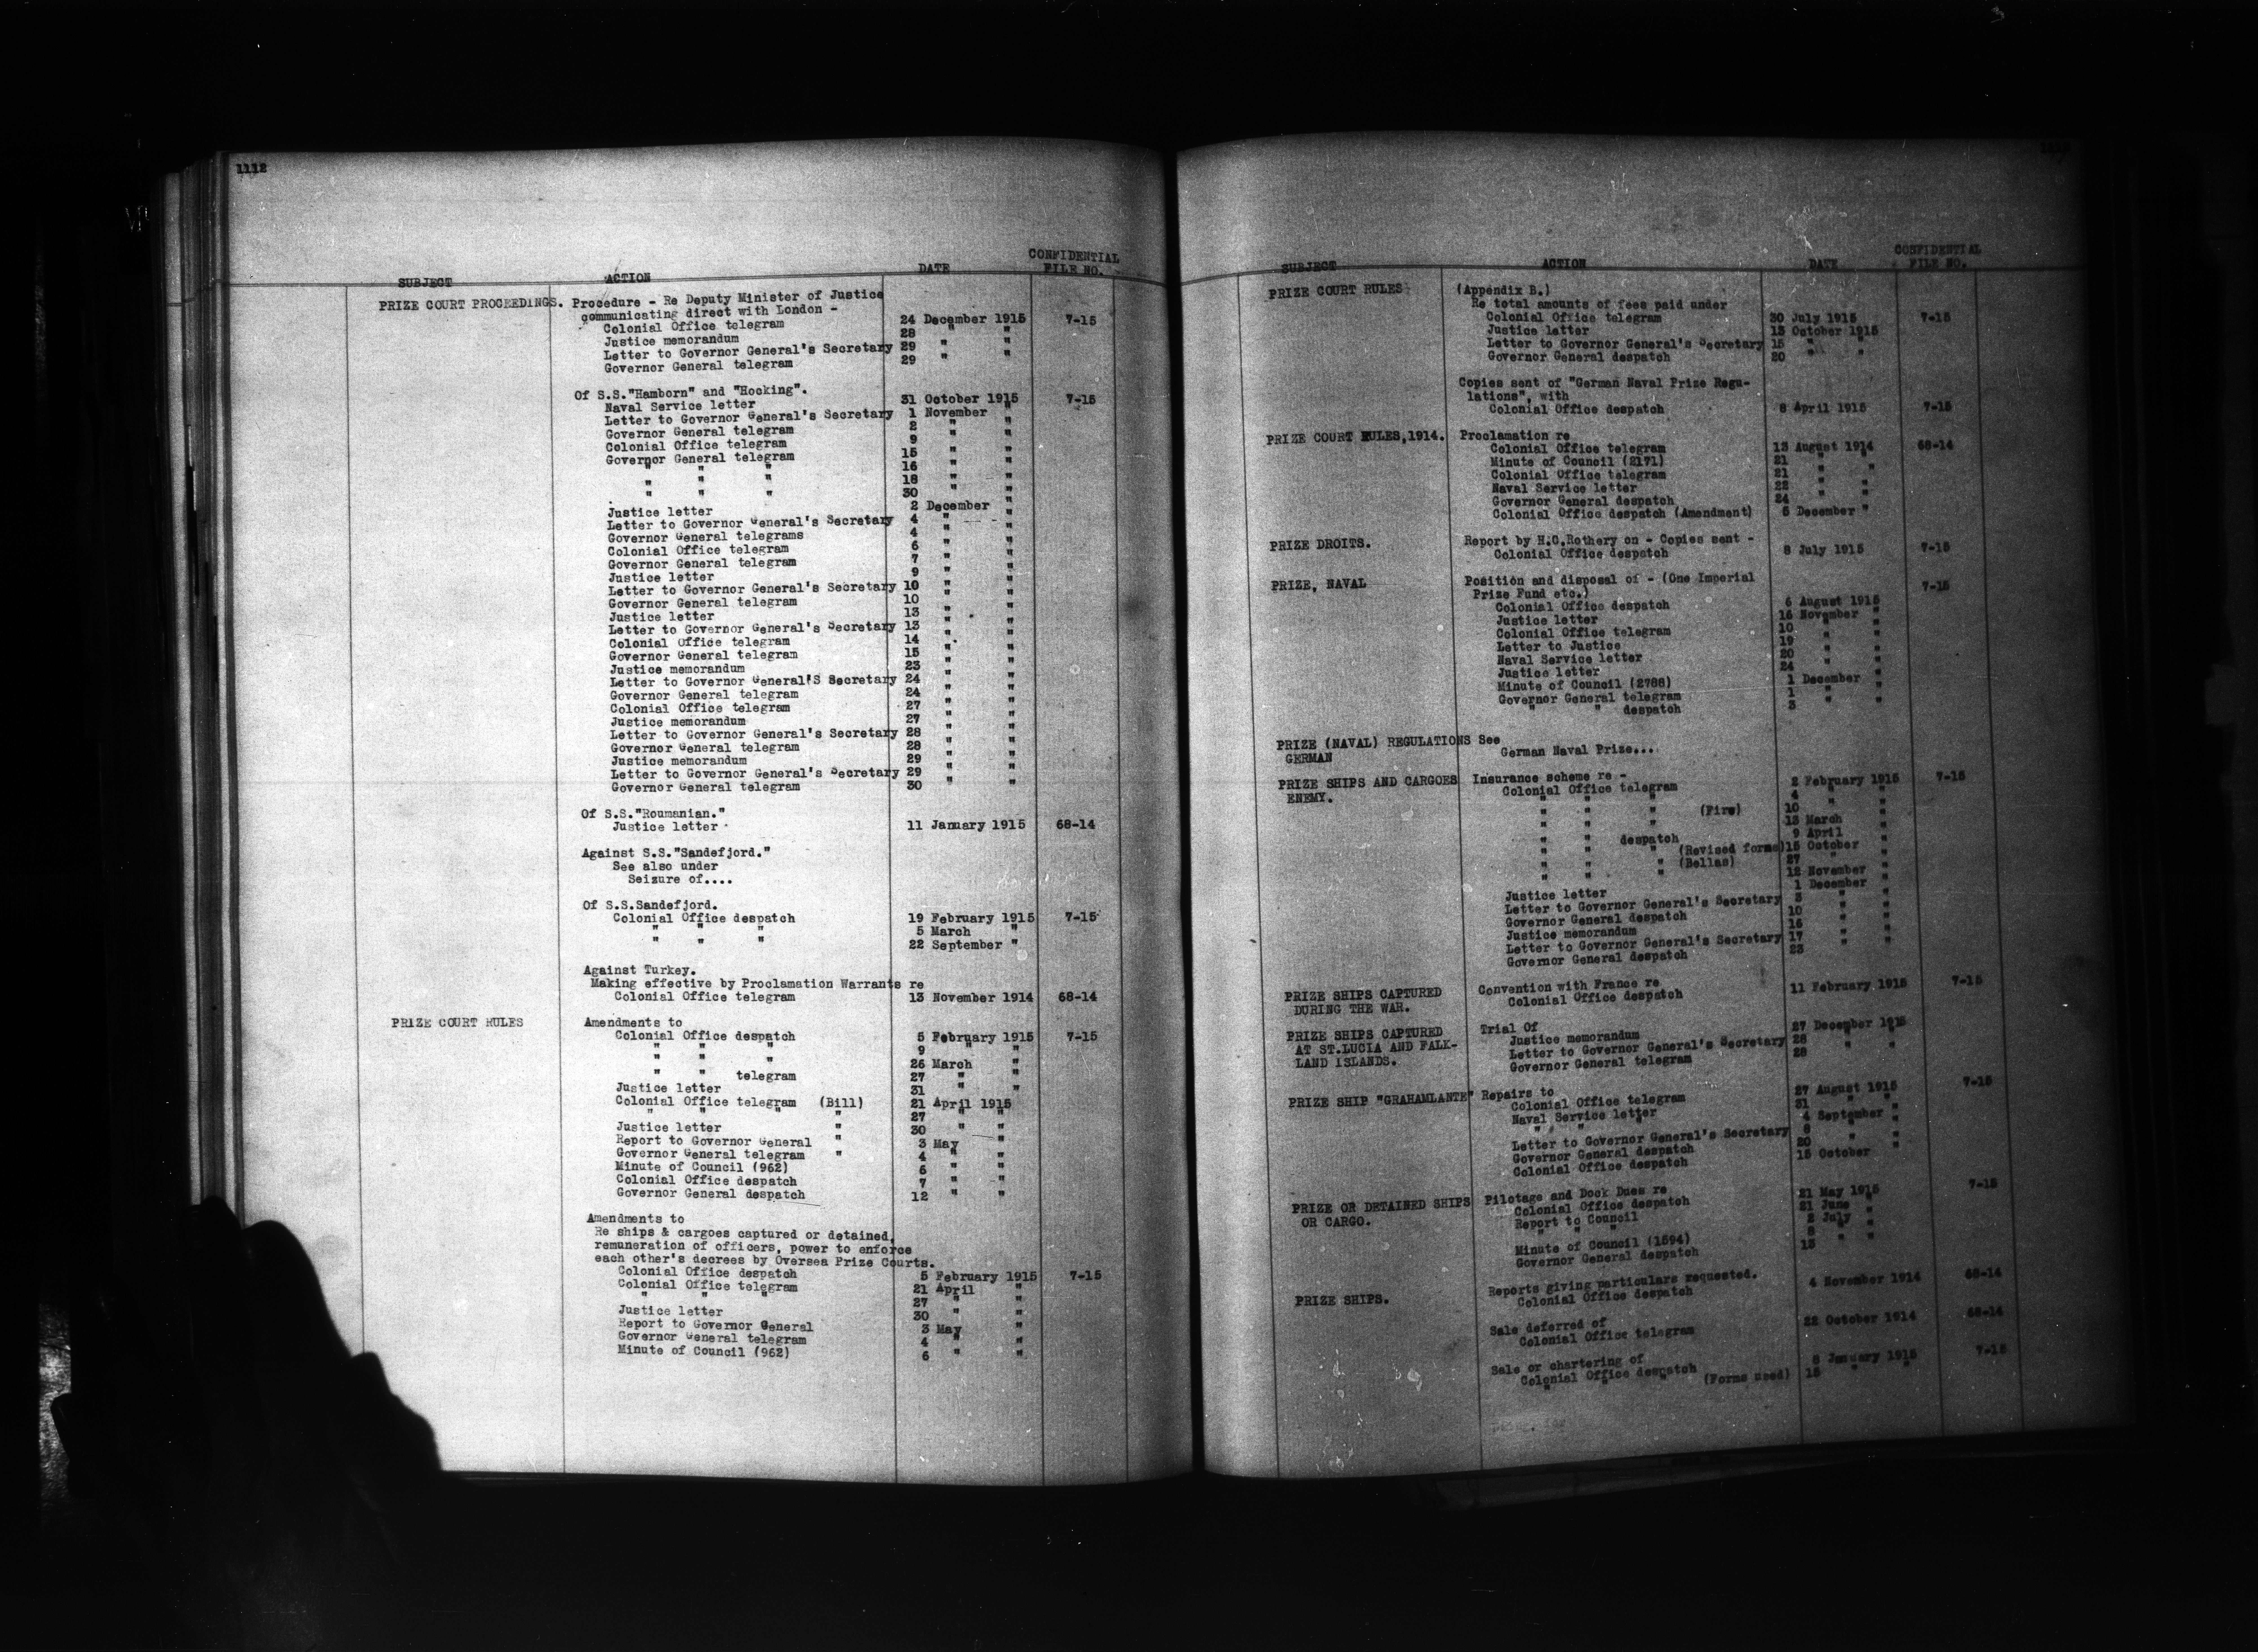 1112
SUBJECT ACTION DATE CONFIDENTIAL FILE NO.
PRIZE COURT PROCEEDINGS. Procedure - Re Deputy Minister of Justice
communicating direct with London -
Colonial Office telegram 24 December 1915 7-15
Justice memorandum 28 " "
Letter to Governor General's Secretary 29 " "
Governor General telegram 29 " "
Of S.S."Hamborn" and "Hocking".
Naval Service letter 31 October 1915 7-15
Letter to Governor General's Secretary 1 November "
Governor General telegram 2 " "
Colonial Office telegram 9 " "
Governor General telegram 15 " "
" " " 16 " "
" " " 18 " "
" " " 30 " "
Justice letter 2 December "
Letter to Governor General's Secretary 4 " "
Governor General telegrams 4 " "
Colonial Office telegram 6 " "
Governor General telegram 7 " "
Justice letter 9 " "
Letter to Governor General's Secretary 10 " "
Governor General telegram 10 " "
Justice letter 13 " "
Letter to Governor General's Secretary 13 " "
Colonial Office telegram 14 " "
Governor General telegram 15 " "
Justice memorandum 23 " "
Letter to Governor General'S Secretary 24 " "
Governor General telegram 24 " "
Colonial Office telegram 27 " "
Justice memorandum 27 " "
Letter to Governor General's Secretary 28 " "
Governor General telegram 28 " "
Justice memorandum 29 " "
Letter to Governor General's Secretary 29 " "
Governor General telegram 30 " "
Of S.S."Roumanian."
Justice letter 11 January 1915 68-14
Against S.S."Sandefjord."
See also under
Seizure of....
Of S.S.Sandefjord.
Colonial Office despatch 19 February 1915 7-15
" " " 5 March "
" " " 22 September "
Against Turkey.
Making effective by Proclamation Warrants re
Colonial Office telegram 13 November 1914 68-14
PRIZE COURT RULES Amendments to
Colonial Office despatch 5 February 1915 7-15
" " " 9 " "
" " " 26 March "
" " telegram 27 " "
Justice letter 31 " "
Colonial Office telegram (Bill) 21 April 1915
" " " " 27 " "
Justice letter " 30 " "
Report to Governor General " 3 May "
Governor General telegram " 4 " "
Minute of Council (962) 6 " "
Colonial Office despatch 7 " "
Governor General despatch 12 " "
Amendments to
Re ships & cargoes captured or detained,
remuneration of officers, power to enforce
each other's decrees by Oversea Prize Courts.
Colonial Office despatch 5 February 1915 7-15
Colonial Office telegram 21 April "
" " " 27 " "
Justice letter 30 " "
Report to Governor General 3 May "
Governor General telegram 4 " "
Minute of Council (962) 6 " "
SUBJECT ACTION DATE CONFIDENTIAL FILE NO.
PRIZE COURT RULES (Appendix B.)
Re total amounts of fees paid under
Colonial Office telegram 30 July 1915 7-15
Justice letter 13 October 1915
Letter to Governor General's Secretary 15 " "
Governor General despatch 20 " "
Copies sent of "German Naval Prize Regu-
lations", with
Colonial Office despatch 8 April 1915 7-15
PRIZE COURT RULES,1914. Proclamation re
Colonial Office telegram 13 August 1914 68-14
Minute of Council (2171) 21 " "
Colonial Office telegram 21 " "
Naval Service letter 22 " "
Governor General despatch 24 " "
Colonial Office despatch (Amendment) 5 December "
PRIZE DROITS. Report by H.C.Rothery on - Copies sent -
Colonial Office despatch 8 July 1915 7-15
PRIZE, NAVAL Position and disposal of - (One Imperial 7-15
Prize Fund etc.)
Colonial Office despatch 6 August 1915
Justice letter 16 November "
Colonial Office telegram 10 " "
Letter to Justice 19 " "
Naval Service letter 20 " "
Justice letter 24 " "
Minute of Council (2788) 1 December "
Governor General telegram 1 " "
" " despatch 3 " "
PRIZE (NAVAL) REGULATIONS See
GERMAN German Naval Prize...
PRIZE SHIPS AND CARGOES Insurance scheme re -
ENEMY. Colonial Office telegram 2 February 1915 7-15
" " " 4 " "
" " " (Fire) 10 " "
" " " 13 March "
" " despatch 9 April "
" " " (Revised forms) 15 October "
" " " (Bellas) 27 " "
" " " 12 November "
Justice letter 1 December "
Letter to Governor General's Secretary 3 " "
Governor General despatch 10 " "
Justice memorandum 16 " "
Letter to Governor General's Secretary 17 " "
Governor General despatch 23 " "
PRIZE SHIPS CAPTURED Convention with France re
DURING THE WAR. Colonial Office despatch 11 February 1915 7-15
PRIZE SHIPS CAPTURED Trial Of
AT ST.LUCIA AND FALK- Justice memorandum 27 December 1915
LAND ISLANDS. Letter to Governor General's Secretary 28 " "
Governor General telegram 28 " "
PRIZE SHIP "GRAHAMLANTE" Repairs to
Colonial Office telegram 27 August 1915 7-15
Naval Service letter 31 " "
" " " 4 September "
Letter to Governor General's Secretary 8 " "
Governor General despatch 20 " "
Colonial Office despatch 15 October
PRIZE OR DETAINED SHIPS Pilotage and Dock Dues re
OR CARGO. Colonial Office despatch 21 May 1915 7-15
Report to Council 21 June "
" " " 2 July "
Minute of Council (1594) 8 " "
Governor General despatch 13 " "
PRIZE SHIPS. Reports giving particulars requested.
Colonial Office despatch 4 November 1914 68-14
Sale deferred of
Colonial Office telegram 22 October 1914 68-14
Sale or chartering of
Colonial Office despatch 8 January 1915 7-15
" " " (Forms used) 15 " "